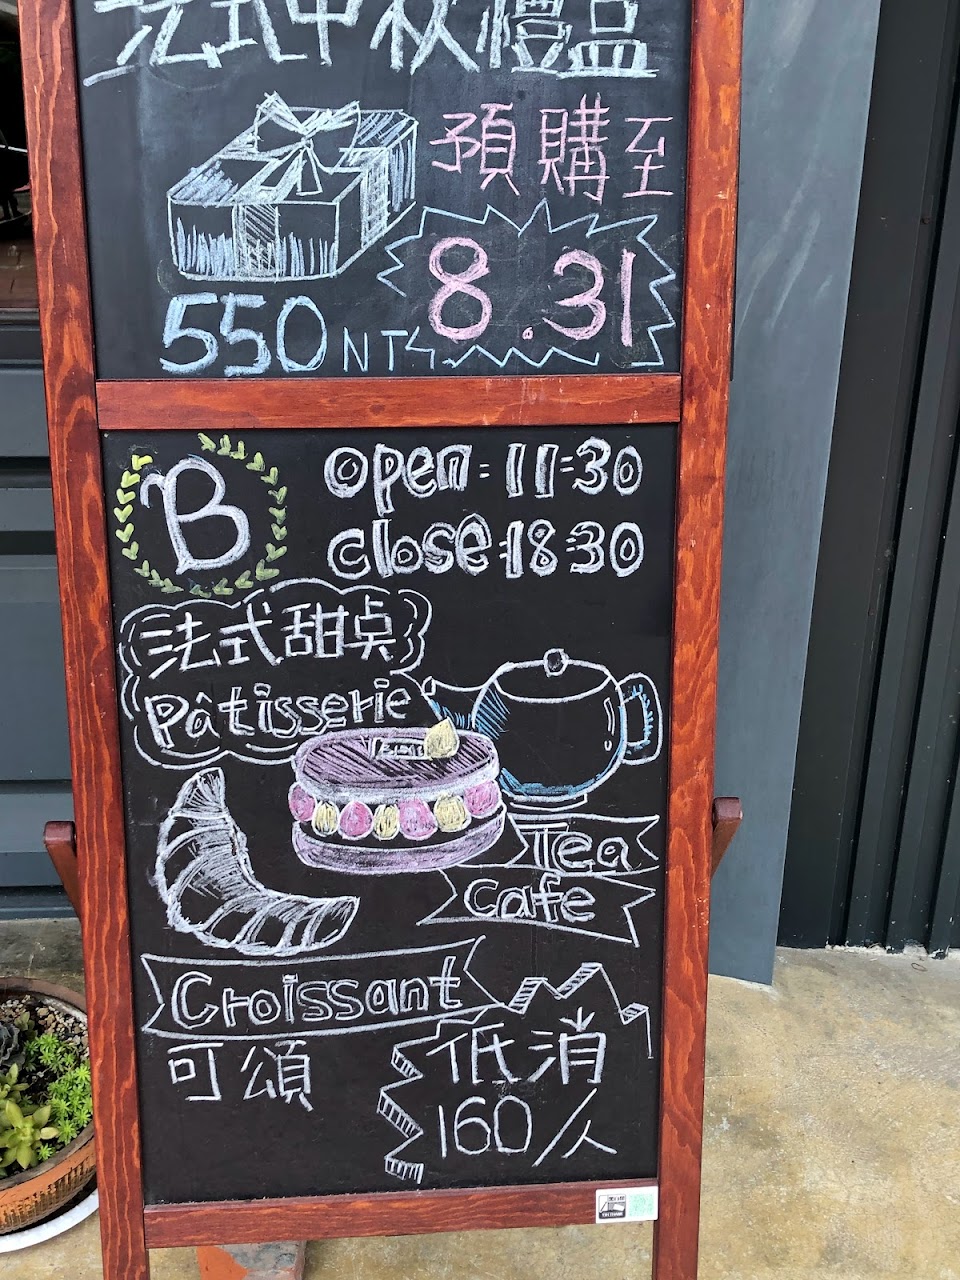 法式中秋禮盒
預購至
8.31
550NT
B
open:11:30
close:18:30
法式甜点
Pâtisserie
Tea
Cafe
Croissant
可頌
低消
160/人